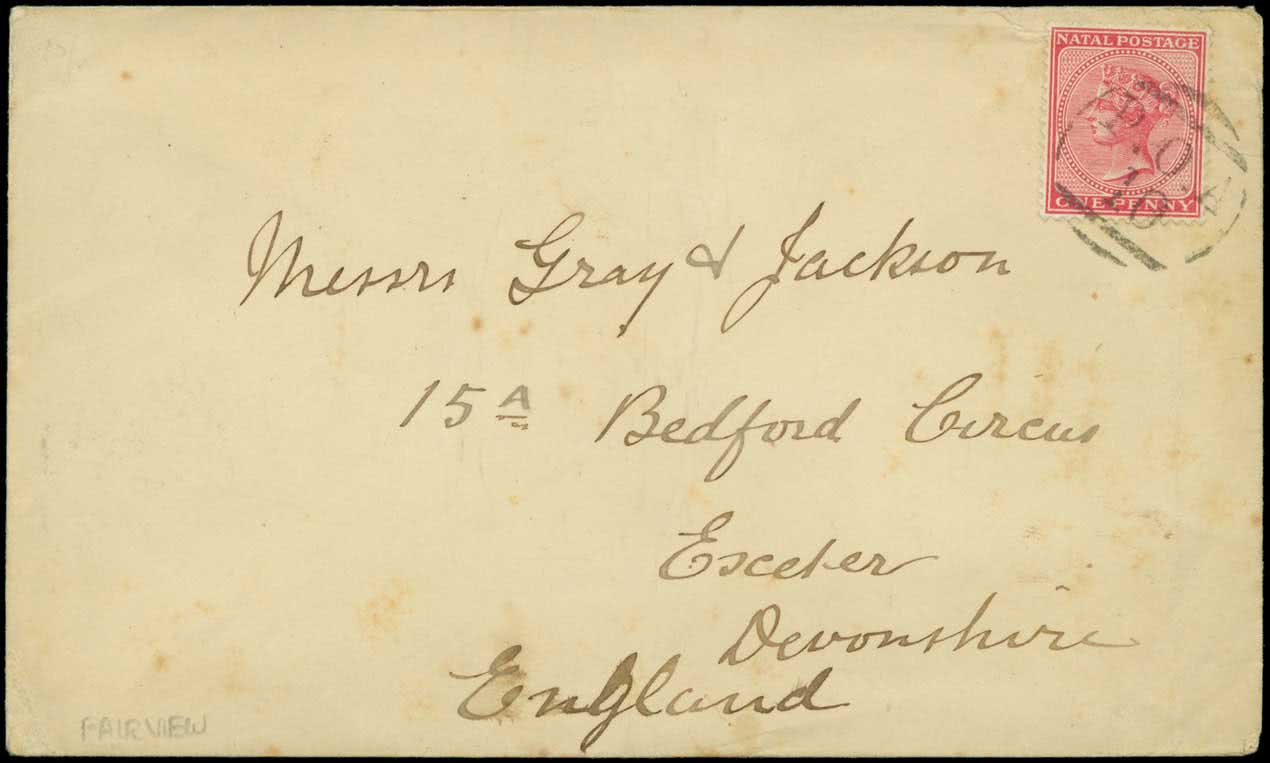 NATAL POSTAGE
ONE PENNY
P.O.A
10
Messrs Gray & Jackson
15 A Bedford Circus
Exceter
Devonshire
England
FAIRVIEW